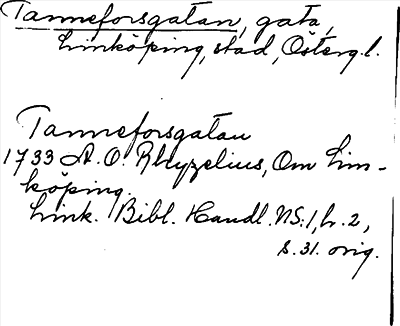 Tanneforsgatan, gata,
Linköping, stad, Österg.l.
Tanneforsgatan
1733 A. O. Rhyzelius, Om Lin-
köping.
Link. Bibl. Handl. NS:1, h. 2,
s. 31. orig.